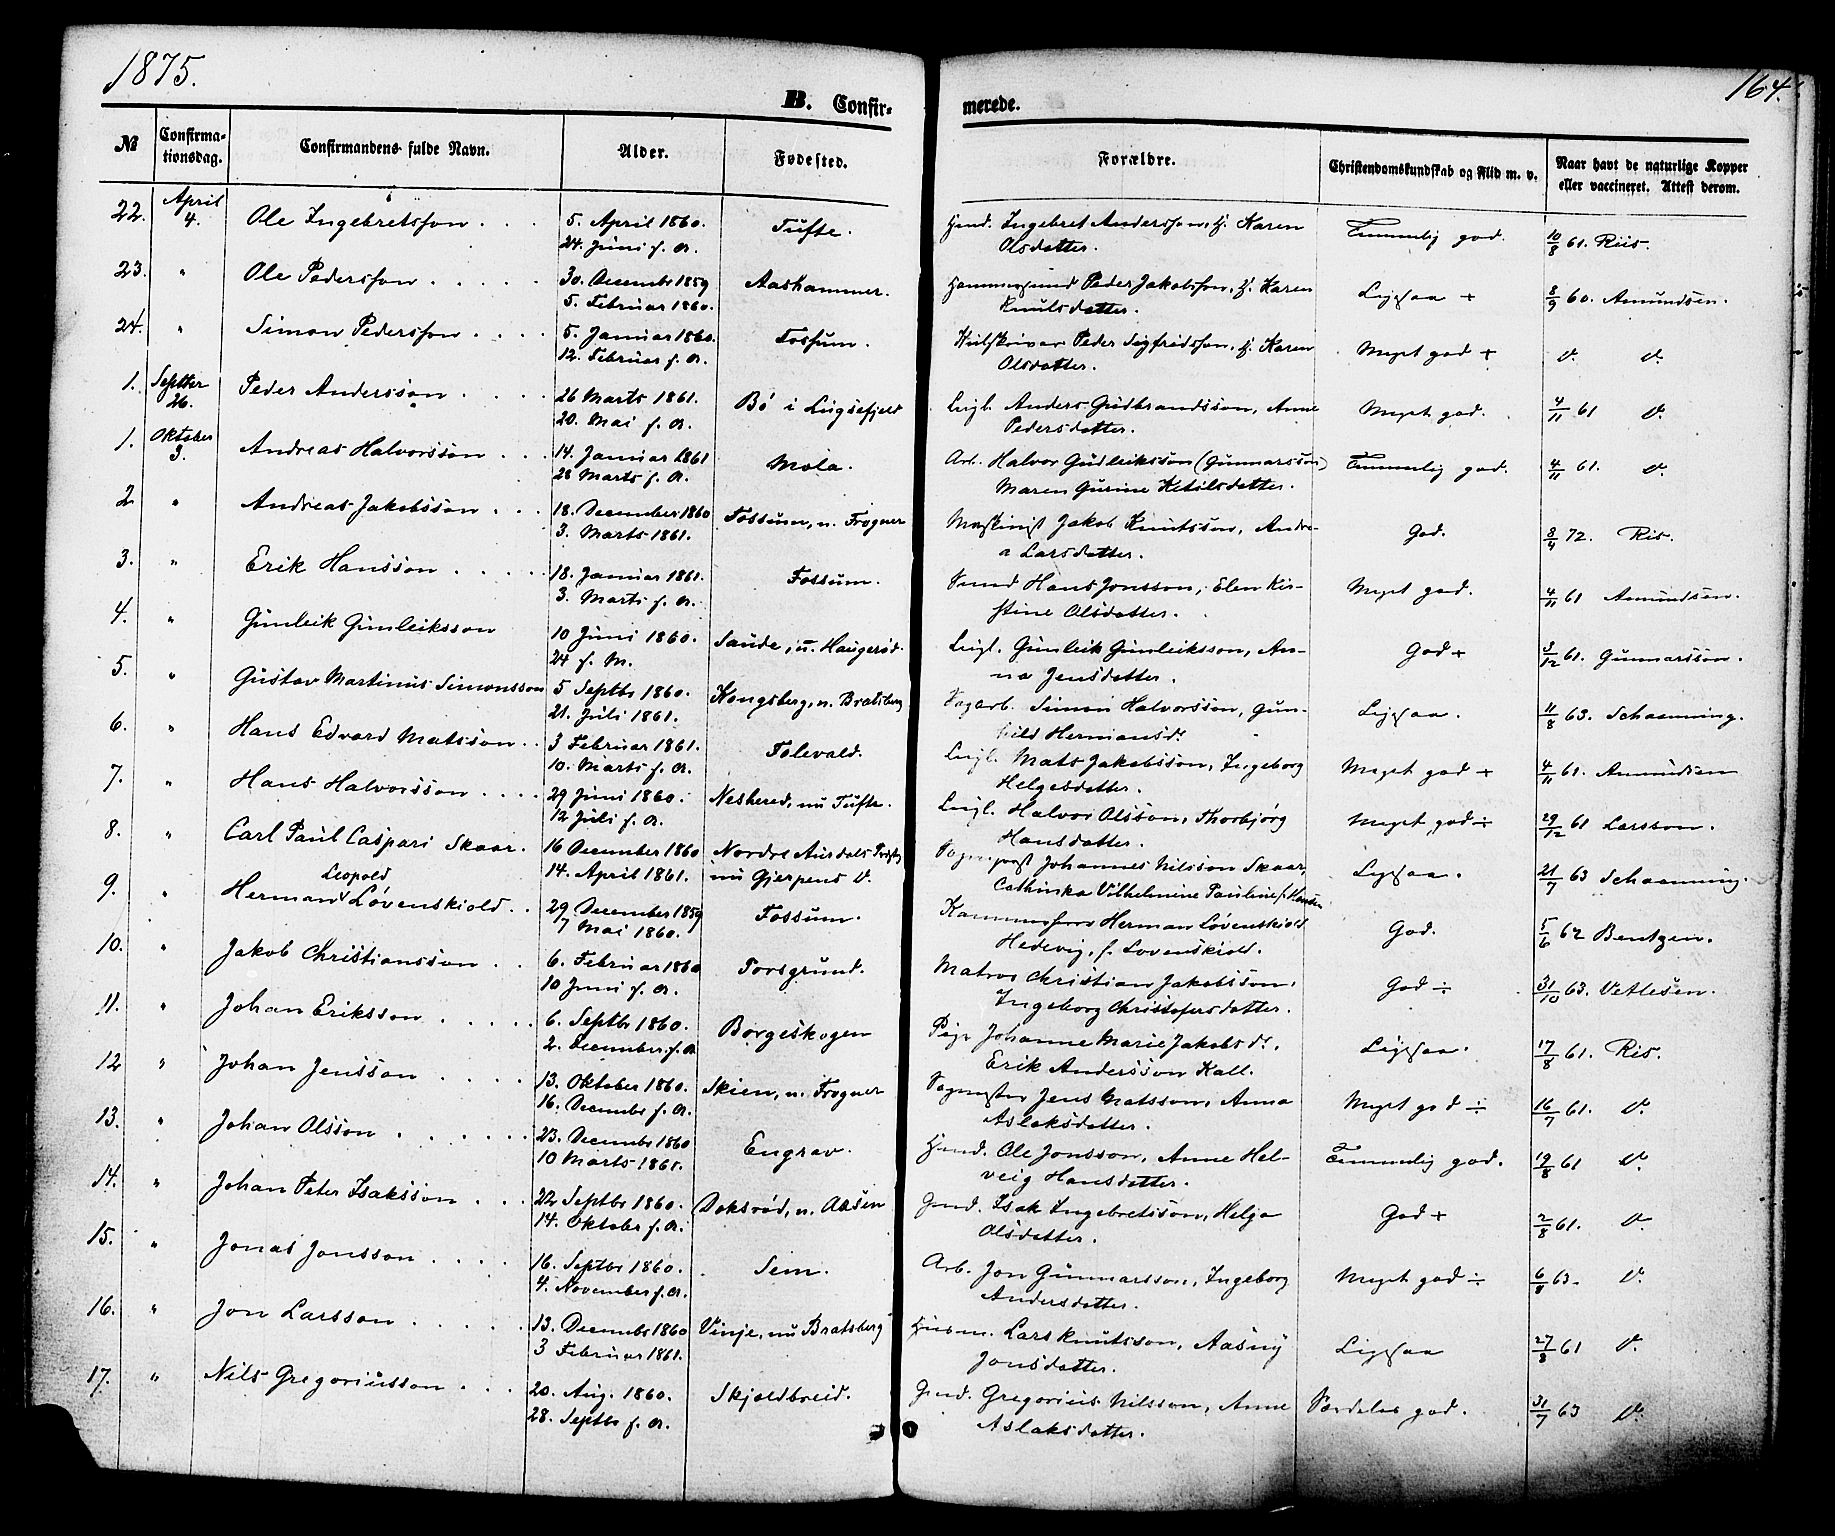 1875.
164.
B. Confir-
merede.
№
Confirma-
tionsdag.
Confirmandens fulde Navn.
Alder.
Fødested.
Forældre.
Christendomskundskab og Flid m. v.
Naar havt de naturlige Kopper
eller vaccineret. Attest derom.
22. April 4. Ole Ingebretsson 5. April 1860. Tufte. Gmd. Ingebret Anderssøn, H. Karen Temmelig god. 10/8 61. Riis.
24. Juni s. A. Olsdatter.
23. " Ole Pederssøn 30. December 1859 Aashammer. Peder Jakobsson, H. Karen Ligesaa + 8/9 60. Amundsen.
5. Februar 1860. Knutsdatter.
24. " Simon Pederssøn 5. Januar 1860. Fossum. Peder Sigfridssøn, H. Karen Meget god + d. d.
12. Februar s. A. Olsdatter.
1. Septber 26. Peder Andersson 26 Marts 1861. Bö i Lugsefjeld Leigl. Anders Gudbrandsson, Anne Meget god. 4/11 61 d.
20. Mai s. A. Pedersdatter.
1. Oktober 3. Andreas Halvorsson 14. Januar 1861 Mola. Arb. Halvor Gudleiksson (Gunnarsson) Temmelig god. 4/11 61. d.
28 Marts s. A. Maren Gurine Ketilsdatter.
2 " Andreas Jakobsson 18. December 1860 Fossum, n. Frogner Maskinist Jakob Knutsson, Andre- God. 8/4 72. Ris.
3. Marts 1861. a Larsdatter.
3. " Erik Hansson 18. Januar 1861. Fossum. Hans Jonsson, Elen Kir- Meget god. 4/11 61 Amundsen.
3. Marts s. A. stine Olsdatter.
4. " Gunleik Gunleiksson 10 Juni 1860. Saude, n. Haugerød. Leigl. Gunleik Gunleiksson, An- God + 3/12 61. Gunnarsson.
24 s. M. na Jensdatter.
5. " Gustav Martinus Simonsson 5 Septbr 1860. Kongsberg, n. Bratsberg Sagarb. Simon Halvorsson, Gun- Ligesaa. 11/8 63. Schaanning.
21. Juli 1861. hild Hermansd.
6. " Hans Edvard Matsson 3 Februar 1861. Follevald. Leigl. Mats Jakobsson, Ingeborg Meget god + 4/11 61. Amundsen
10. Marts s. A. Helgesdatter.
7. " Hans Halvorsson 29 Juni 1860. Neshered, nu Tufte. Leigl. Halvor Olsson, Thorbjørg Meget god ÷ 29/12 61 Larsson.
12 Juli s. A. Hansdatter.
8. " Carl Paul Caspari Skaar. 16 December 1860 Nordre Aurdals Prstg. Johannes Nilsson Skaar, Ligesaa. 21/7 63 Schaanning.
14. April 1861. nu Gjerpens d. Cathinka Vilhelmine Pauline f. Hansen
9. " Herman Leopold Løvenskiold 29 December 1859 Fossum. Kammerherre Herman Løvenskiold God. 5/6 62 Bentzen.
7 Mai 1860. Hedevig, f. Løvenskiold.
10. " Jakob Christiansson 6. Februar 1860 Porsgrund. Matros Christian Jakobsson, God ÷ 31/10 63. Vetlesen.
10 Juni s. A. Ingeborg Christofersdatter.
11. " Johan Eriksson 6. Septbr 1860. Borgeskogen Pige Johanne Marie Jakobsd., Ligesaa. 17/8 61. Ris.
2. December s. A. Erik Andersson Kall.
12 " Johan Jensson 13. Oktober 1860. Skien, n. Frogner Vognmester Jens Matsson, Anna Meget god ÷ 16/7 61. d.
16. Decembr s. A. Aslaksdatter.
13. " Johan Olsson 23. Decembr 1860 Engrav. Gmd. Ole Jonsson, Anne Hel- Temmelig god. 19/8 61 d.
10 Marts 1861. veig Hansdatter.
14. " Johan Peter Isaksson 22 Septbr 1860. Doksrød, n. Aasen Gmd. Isak Ingebretsson, Helga God + 2/8 61. d.
14. Oktober s. A. Olsdatter.
15. " Jonas Jonsson 16. Septbr 1860. Sem. Arb. Jon Gunnarsson, Ingeborg Meget god ÷ 6/8 63. d.
4. November s. A. Andersdatter.
16. " Jon Larsson 13. Decembr 1860 Vinje, nu Bratsberg Husm. Lars Knutsson, Aasny Ligesaa 27/8 61 d.
3 Februar 1861. Jonsdatter.
17. " Nils Gregoriusson 20. Aug. 1860. Skjoldbreid. Gmd. Gregorius Nilsson, Anne Særdeles god. 31/7 63 d.
28. Septbr s. A. Aslaksdatter.